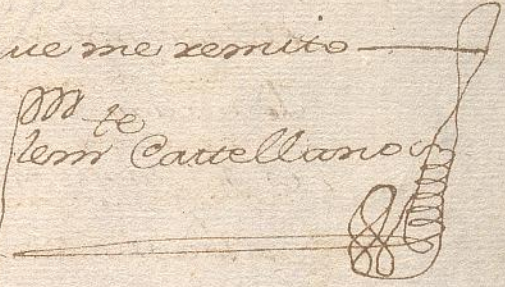 ue me remito
te
lem Castellano